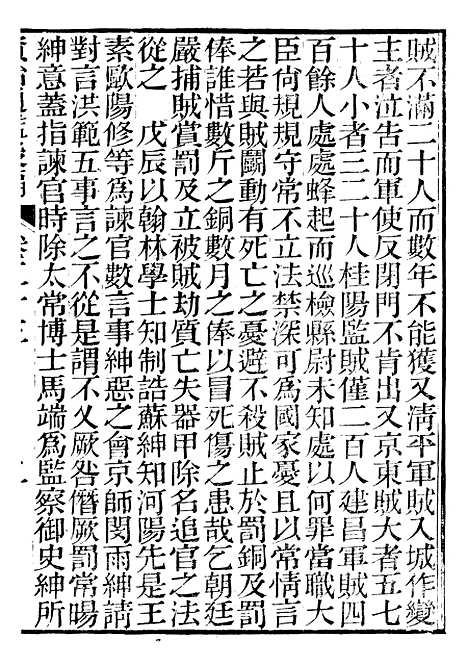 賊不滿二十人而數年不能獲又淸平軍賊入城作變
主者泣告而軍使反閉門不肯出又京東賊大者五七
十人小者三二十人桂陽監賊僅二百人建昌軍賊四
百餘人處處蜂起而巡檢縣尉未知處以何罪當職大
臣尙規規守常不立法禁深可爲國家憂且以常情言
之若與賊鬭動有死亡之憂避不殺賊止於罰銅及罰
俸誰惜數斤之銅數月之俸以冒死傷之患哉乞朝廷
嚴捕賊賞罰及立被賊劫質亡失器甲除名追官之法
從之　戊辰以翰林學士知制誥蘇紳知河陽先是王
素歐陽修等爲諫官數言事紳惡之會京師閔雨紳請
對言洪範五事言之不從是謂不乂厥咎僭厥罰常暘
紳意蓋指諫官時除太常博士馬端爲監察御史紳所